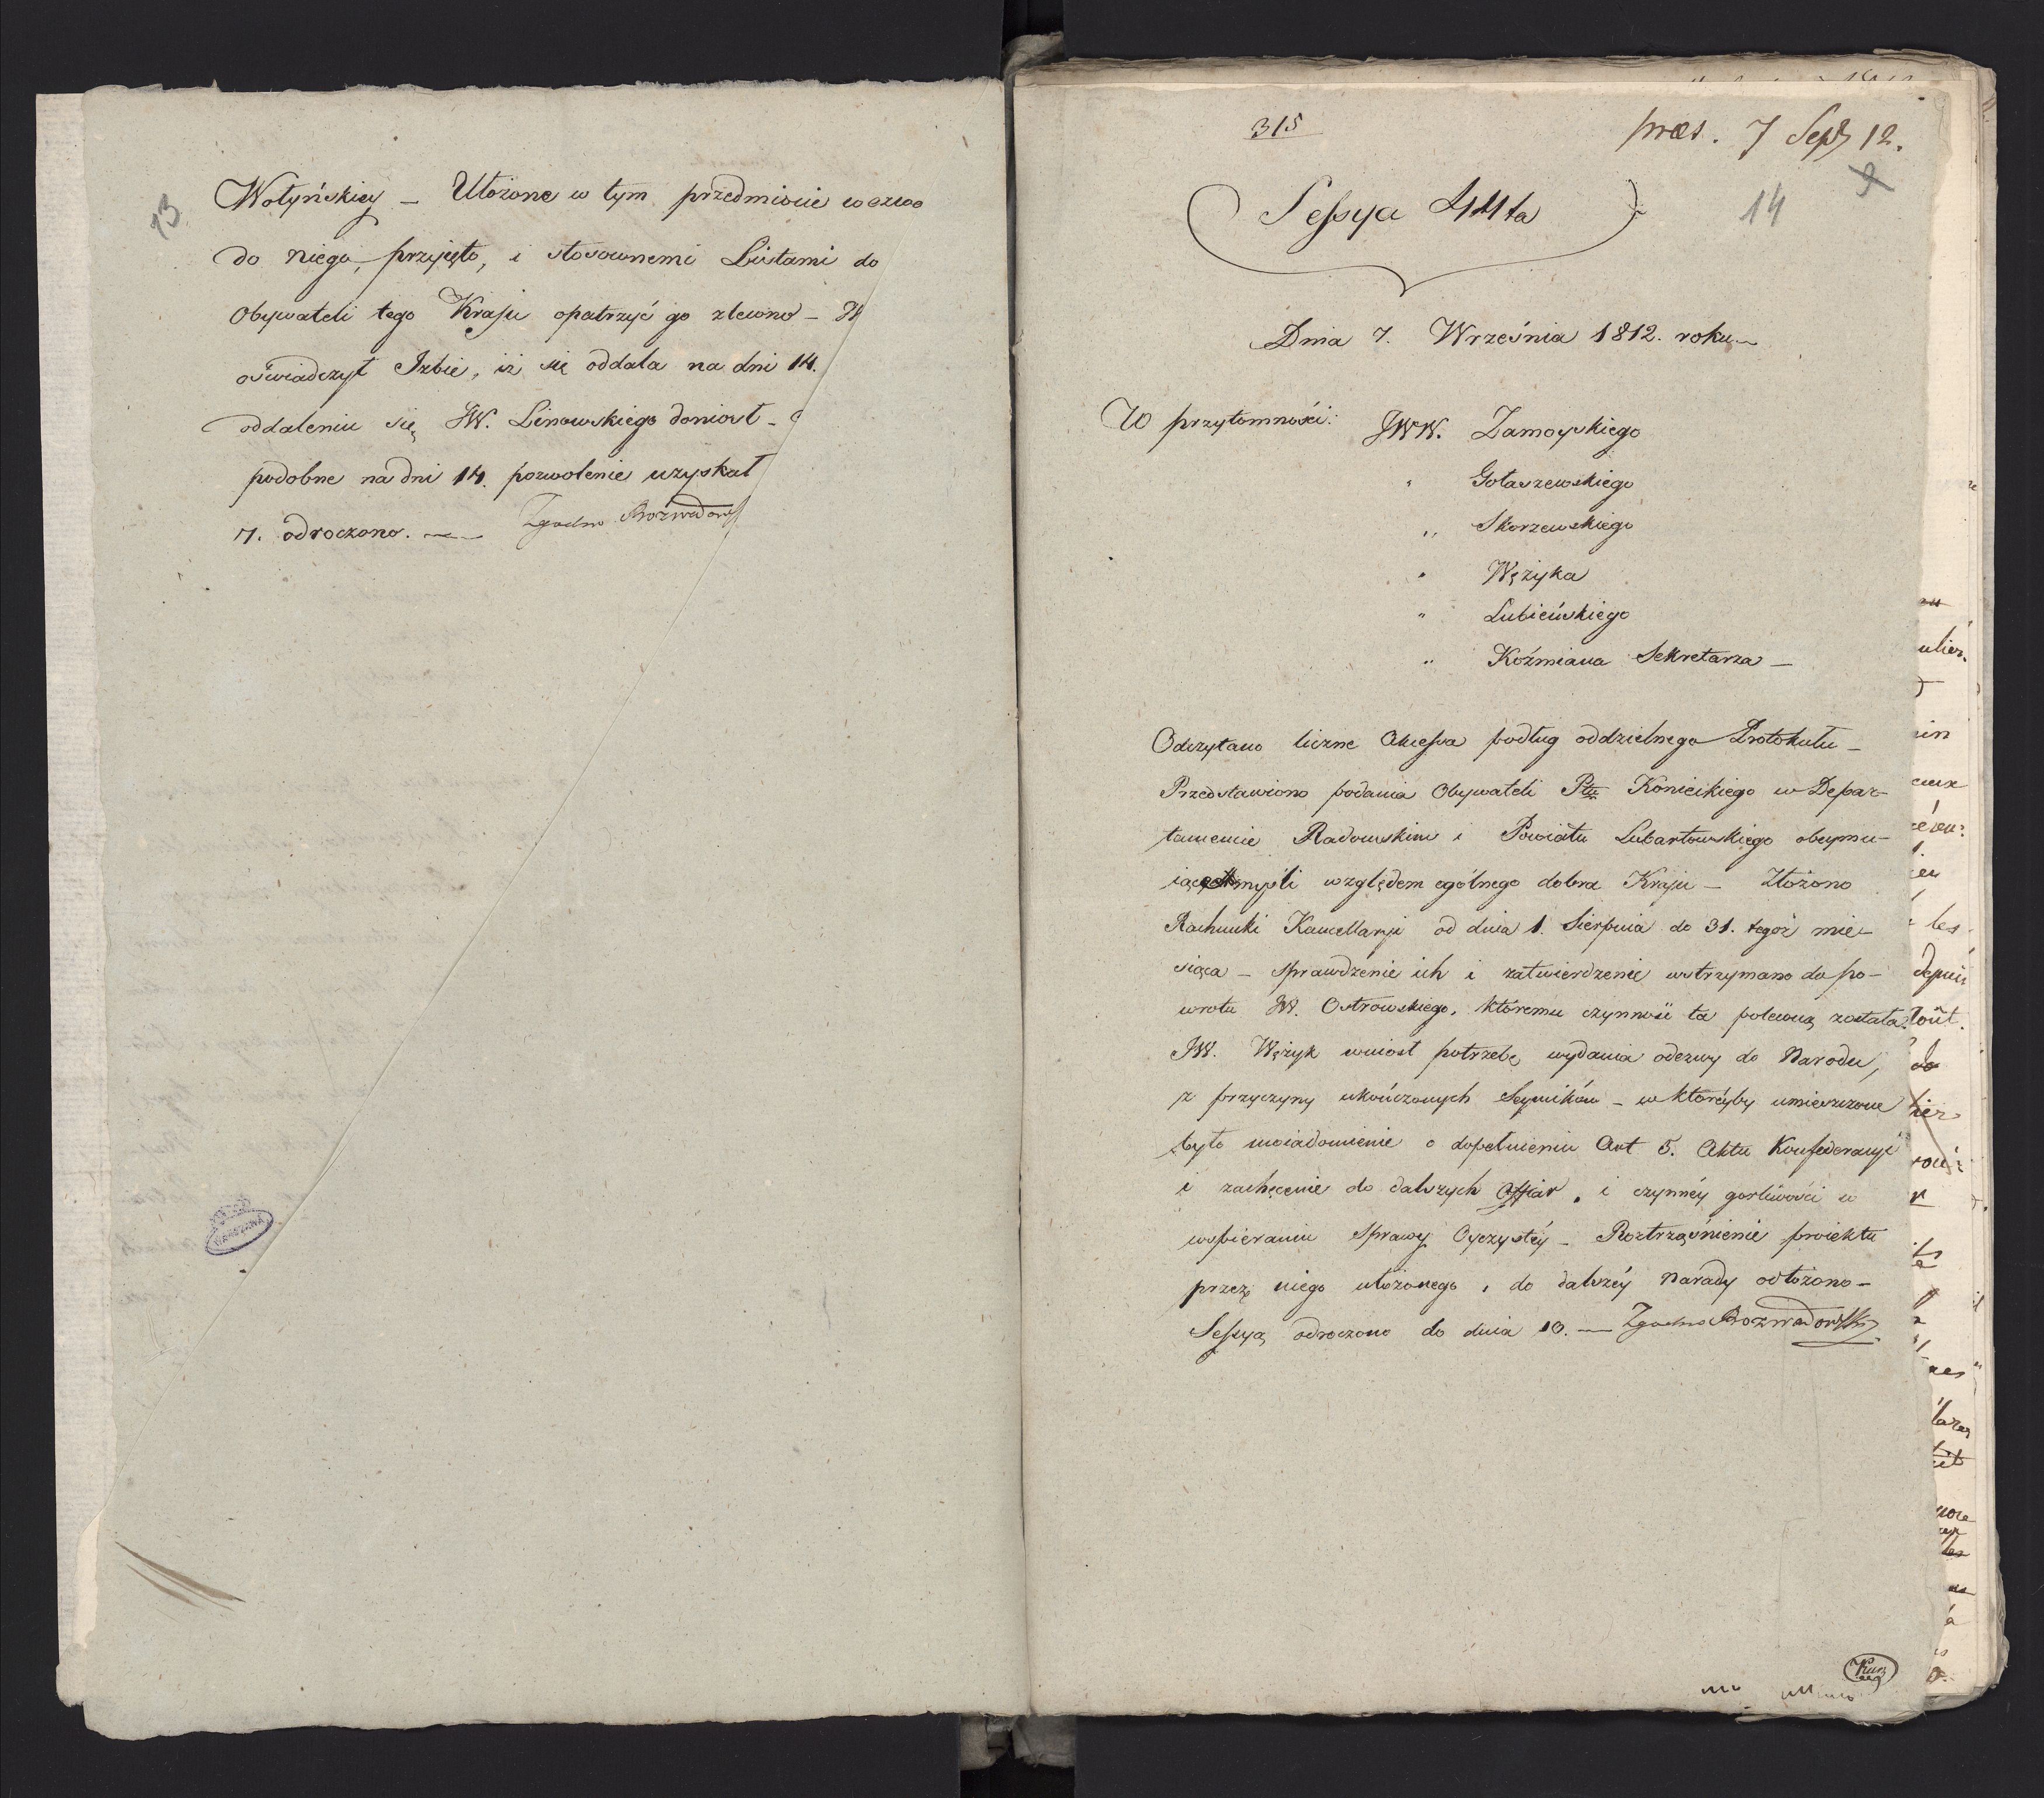 13
Wołyńskiey – Ułożone w tym przedmiocie
do niego, przyjęto, i stosownemi Listami do
Obywateli tego Kraju opatrzyć go zlecono –
oświadczył Izbie, iż się oddala na dni 14.
oddaleniu się JW. Linowskiego doniosł –
podobne na dni 14. pozwolenie uzyskał
7. odroczono. — Zgodno
315
præs. 7 Sept 12.
14
Sessya 44ta
Dnia 7. Września 1812. roku
W przytomności: JWW. Zamoyskiego
" Gołaszewskiego
" Skorzewskiego
" Wężyka
" Lubieńskiego
" Koźmiana Sekretarza –
Odczytano liczne Akcessa podług oddzielnego Protokułu –
Przedstawiono podania Obywateli Ptu Konieckiego w Depar-
tamencie Radomskim i Powiatu Lubartowskiego obeymu-
iące myśli względem ogólnego dobra Kraju – Złożono
Rachunki Kancellaryi od dnia 1. Sierpnia do 31. tegoż mie-
siąca – sprawdzenie ich i zatwierdzenie wstrzymano do po-
wrotu JW. Ostrowskiego, któremu czynność ta poleconą została.
JW. Wężyk wniosł potrzebę wydania odezwy do Narodu,
z przyczyny ukończonych Seymików – w któréyby umieszczone
było uwiadomienie o dopełnieniu Art 5. Aktu Konfederacyi
i zachęcenie do dalszych Offiar, i czynnéy gorliwości w
wspieraniu sprawy Oyczystéy – Roztrząśnienie proiektu
przez niego ułożonego, do dalszéy narady odłożono –
Sessyą odroczono do dnia 10. — Zgodno Rozwadowski